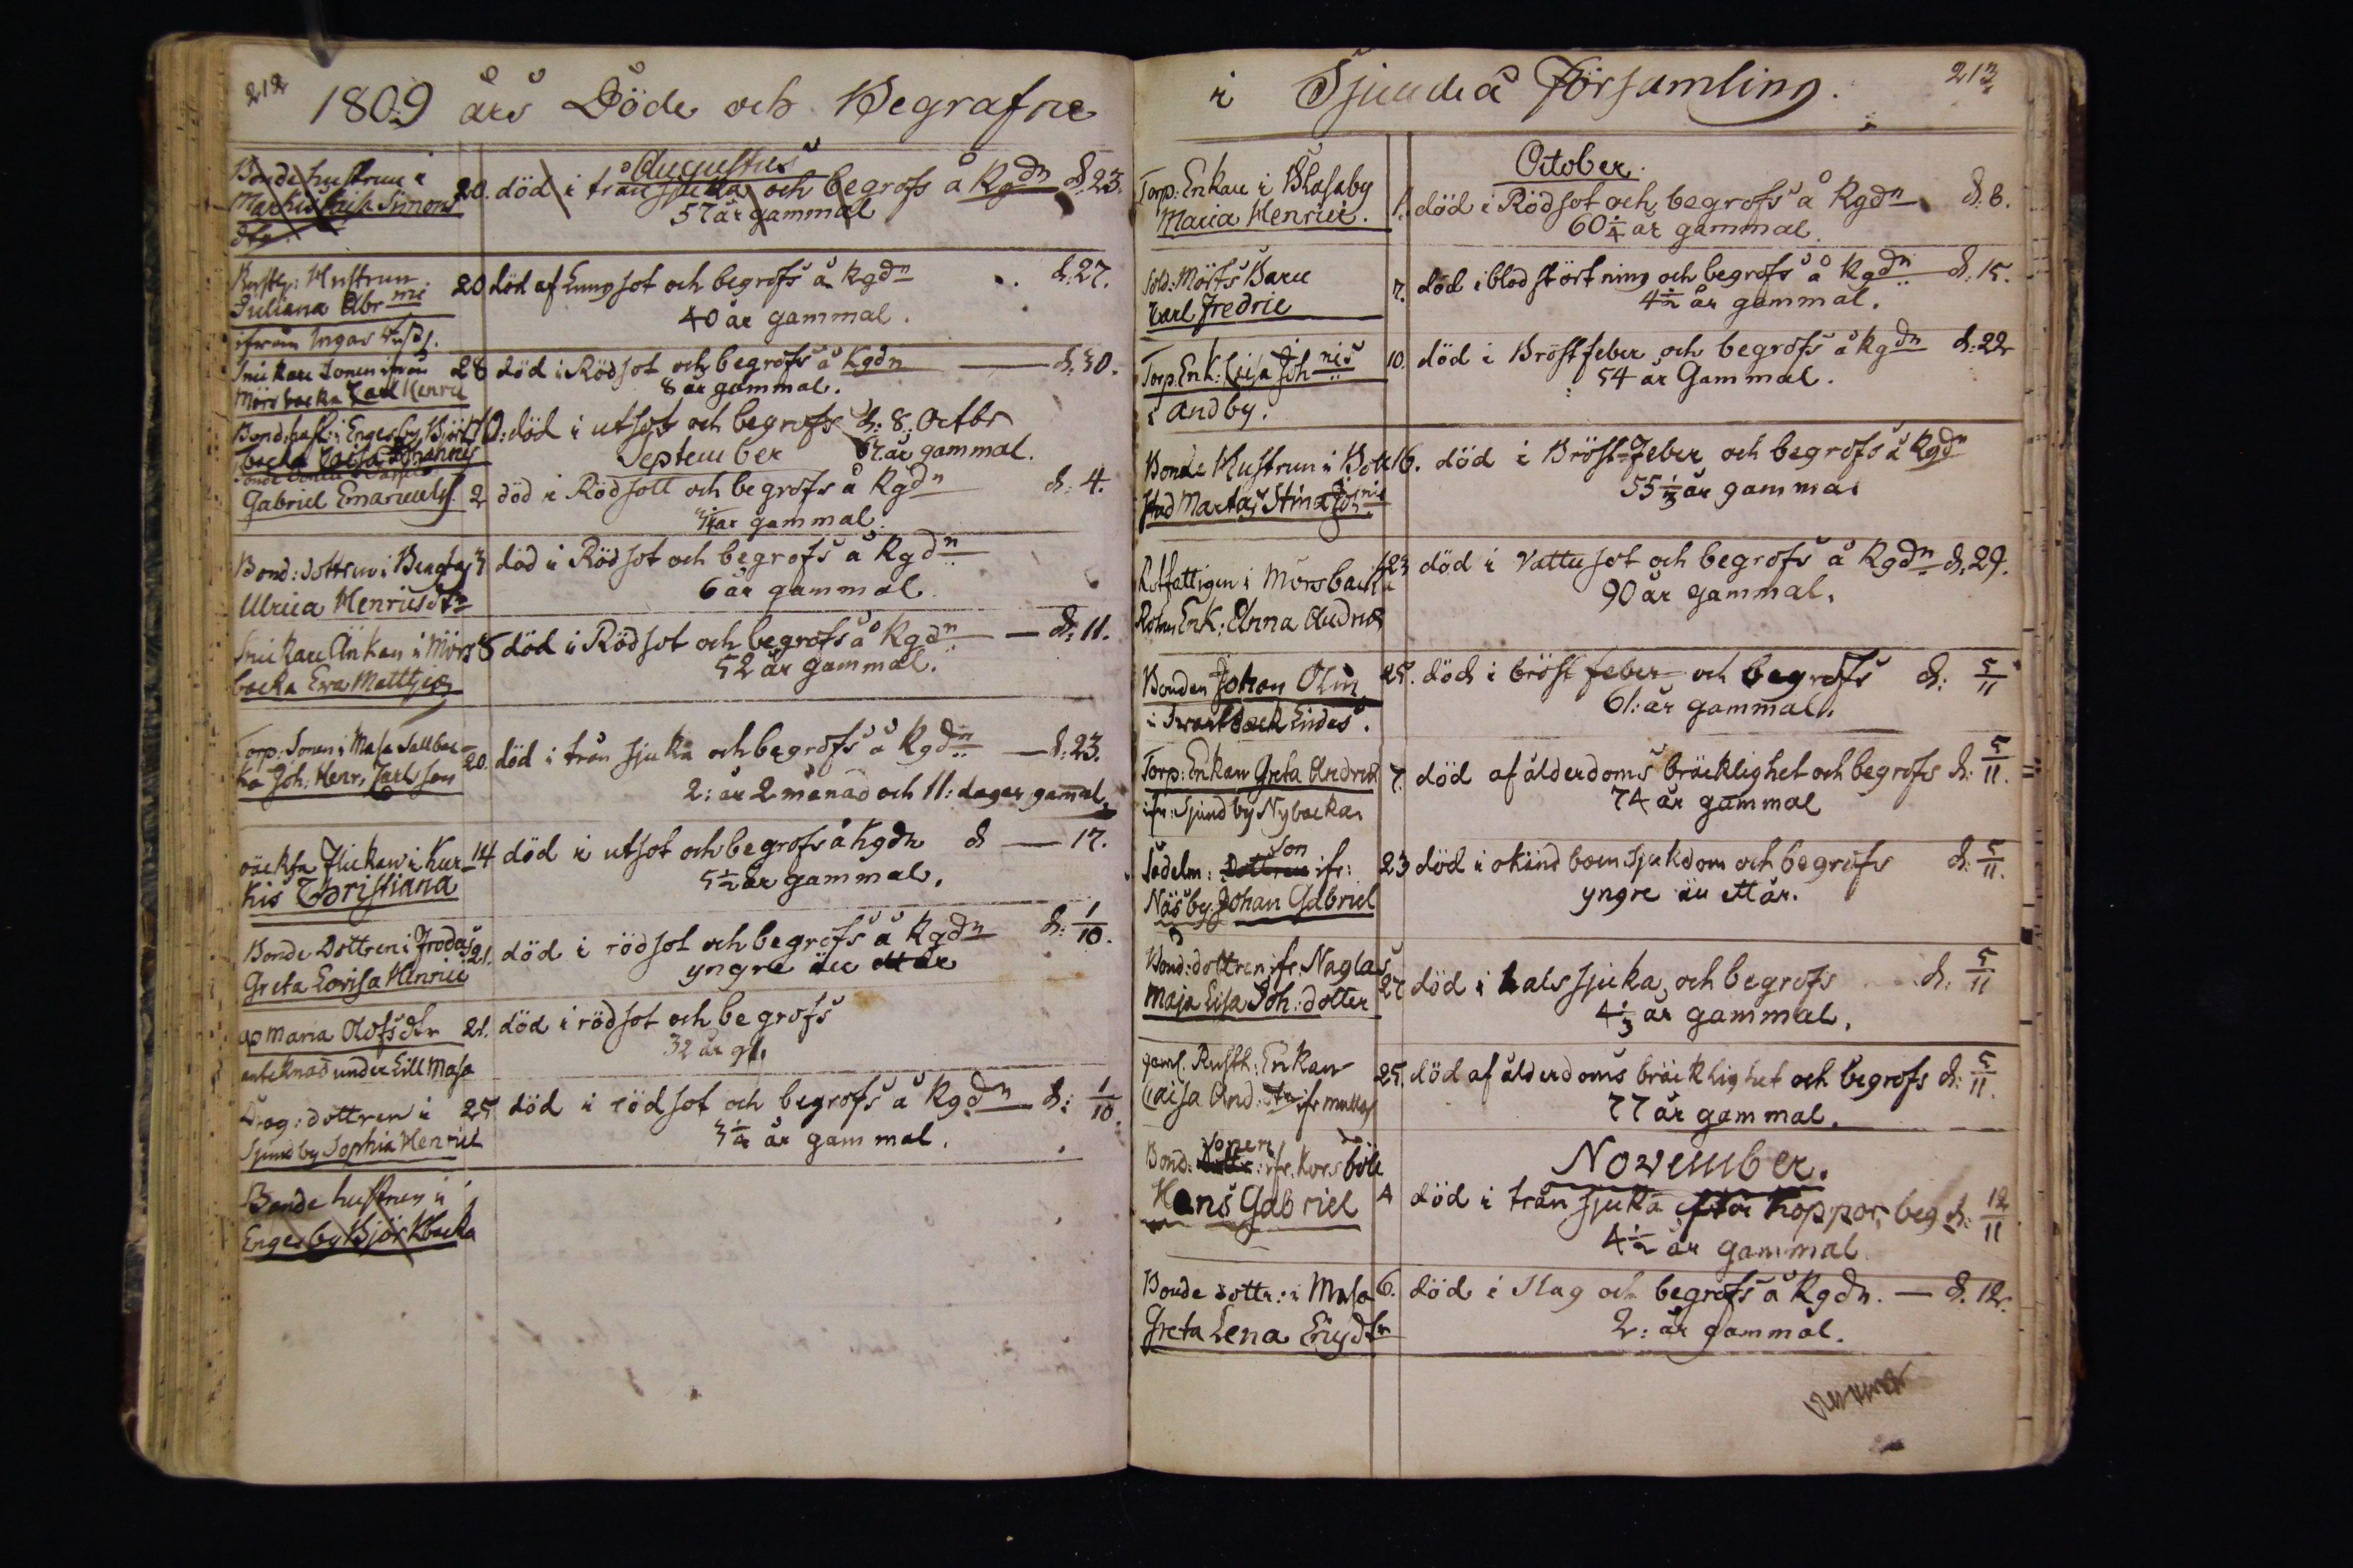 212
1809 års Döde och Begrafne
Augustus
Bonde hustrun i
Markus Lisa Simons
dtr
20. död i trånsjuka och begrofs å Kgdn d. 23.
57 år gammal
Hustrun
Juliana Abr
ifrån Ingas
20 död af Lungsot och begrofs å kgdn d. 27.
40 år gammal.
Snickare Sonen ifrån
Mörsbacka Carl Henric
28 död i Rödsot och begrofs å Kgdn d. 30.
8 år gammal.
Bond. hust: i Engesby Björk
backa Caisa Johannis
10: död i utsot och begrofs d: 8. Octbr
67 år gammal.
September
Gabriel Emanuels
2 död i Rödsott och begrofs å Kgdn d: 4.
år gammal.
Bond: dottren i
Ulrica Henricsdtr
3 död i Rödsot och begrofs å Kgdn
6 år gammal.
Snickare Änkan i Mörs
backa Eva Mattsis
8 död i Rödsot och begrofs å Kgdn d: 11.
52 år gammal.
Torp: Sonen i Masa Sallbac-
ka Joh: Henr. Carlson
20. död i trånsjuka och begrofs å Kgdn d. 23.
2: år 2 månad och 11: dagar gamal.
oäckta flickan i Kur-
kis Christiana
14 död i utsot och begrofs å Kgdn d 17.
5 1/2 år gammal.
Bonde Dottren i Frodus
Greta Lovisa Henrici
21. död i rödsot och begrofs å Kgdn d: 1/10.
yngre än ett år
Maria Olofs dtr
anteknad under Lill Masa
21. död i rödsot och begrofs
32 år gl.
dottren i
Sjundby Sophia Henric
25 död i rödsot och begrofs å Kgdn d: 1/10.
år gammal.
Bonde hustrun i
Engesby Björkbacka
i Sjundeå Församling.
213
October.
Torp. Enkan i Blasaby
Maria Henrici.
1. död i Rödsot och begrofs å Kgdn d. 8.
60 1/4 år gammal.
Sold: Mörts Barn
Carl Fredric
7. död i blodstörtning och begrofs å Kgdn d. 15.
4 1/2 år gammal.
Torp. Enk: Lisa Johnis
i Andby.
10. död i Bröstfeber och begrofs å kgdn d: 22
54 år Gammal.
Bonde Hustrun i Böle
stad Martas Stina
16. död i Bröst-Feber och begrofs å Kgdn
55 1/3 år gammal
Rotfattigen i Mörsbacka
Enk: Anna Andrs
23 död i Vattusot och begrofs å Kgdn d. 29.
90 år gammal.
Bonden Johan Olin
i Svartback Lindes.
25. död i bröst feber och begrofs d: 5/11
61: år gammal.
Torp: Enkan Greta Andrs
ifr: Sjundby Nybacka
7. död af ålderdoms bräcklighet och begrofs d: 5/11.
74 år gammal
Sadelm: Dottren Son ifr:
Näsby Johan Gabriel
23 död i okänd barnsjukdom och begrofs d: 5/11.
yngre än ett år.
Bond: dottren ifr. Naglas
Maja Lisa Joh: dotter
27 död i halssjuka, och begrofs d. 5/11
4 1/3 år gammal.
gaml. Rusth: Enkan
Caisa And: dtr ifr mullas
25. död af ålderdoms bräcklighet och begrofs d: 5/11.
77 år gammal.
November.
Bond: sonen ifr. Korsböle
Hans Gabriel
4 död i trånsjuka efter koppor, beg d: 12/11
4 1/2 år gammal
Bonde dottr: i Masa
Greta Lena Ericsdtr
6. död i Slag och begrofs å Kgdn. d. 12.
2: år gammal.